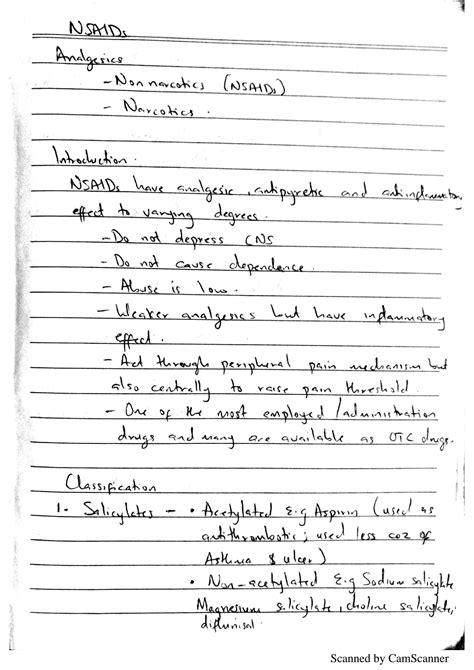 NSAIDs
Analgesics
- Non narcotics (NSAIDs)
- Narcotics.
Introduction.
NSAIDs have analgesic, antipyretic and antiinflammatory
effect to varying degrees.
- Do not depress CNS
- Do not cause dependence.
- Abuse is low.
- Weaker analgesics but have inflammatory
effect.
- Act through peripheral pain mechanism but
also centrally to raise pain threshold.
- One of the most employed/administration
drugs and many are available as OTC drugs.
Classification
1. Salicylates - • Acetylated E.g Aspirin (used as
antithrombotic; used less coz of
Asthma & ulcer)
• Non-acetylated E.g Sodium salicylate
Magnesium salicylate, choline salicylate,
diflunisal.
Scanned by CamScanner